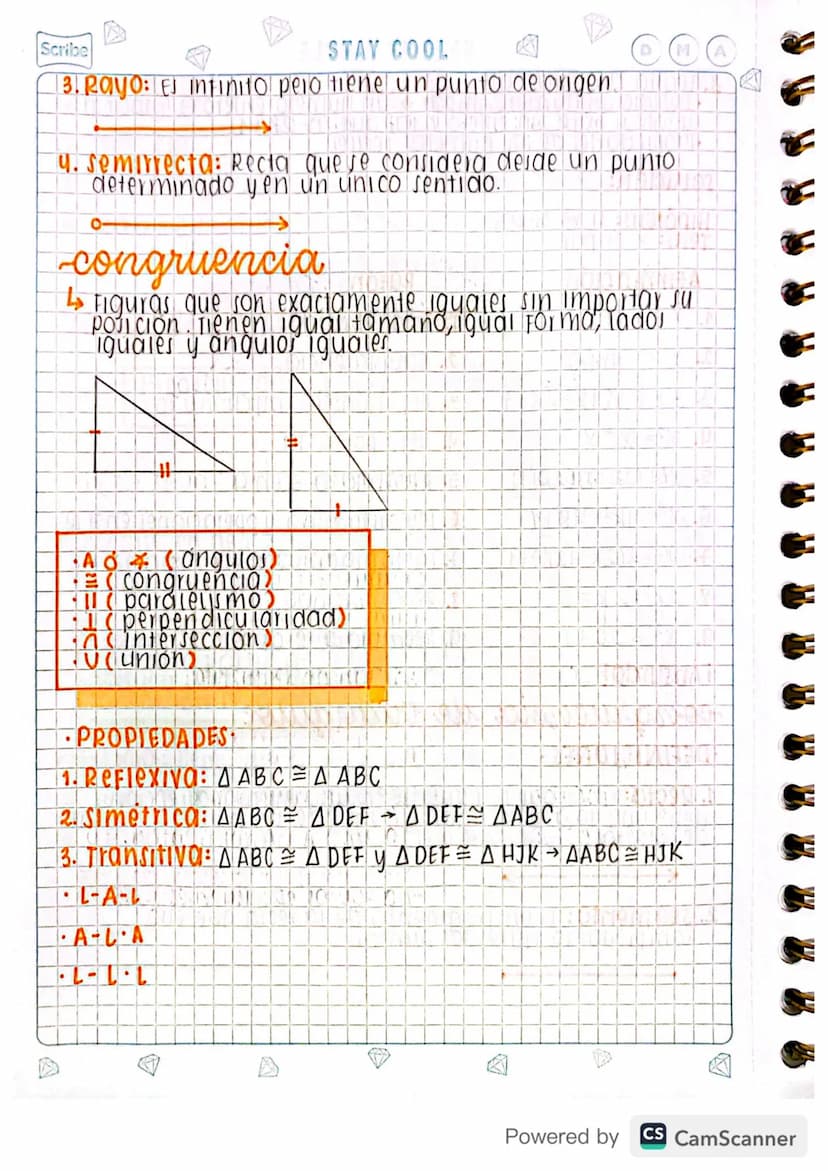 Scribe
STAY COOL
D M A
3. Rayo: Es infinito pero tiene un punto de origen.
4. Semirrecta: Recta que se considera desde un punto
determinado y en un unico sentido.
-congruencia
↳ Figuras que son exactamente iguales sin importar su
posición. Tienen igual tamaño, igual forma, lados
iguales y angulos iguales.
· A ó ∡ (angulos)
· ≅ (congruencia)
· || (paralelismo)
· ⊥ (perpendicularidad)
· ∩ (intersección)
· ∪ (unión)
· PROPIEDADES·
1. Reflexiva: Δ ABC ≅ Δ ABC
2. Simétrica: Δ ABC ≅ Δ DEF → Δ DEF ≅ Δ ABC
3. Transitiva: Δ ABC ≅ Δ DEF y Δ DEF ≅ Δ HJK → Δ ABC ≅ HJK
· L-A-L
· A-L·A
· L-L·L
Powered by CS CamScanner